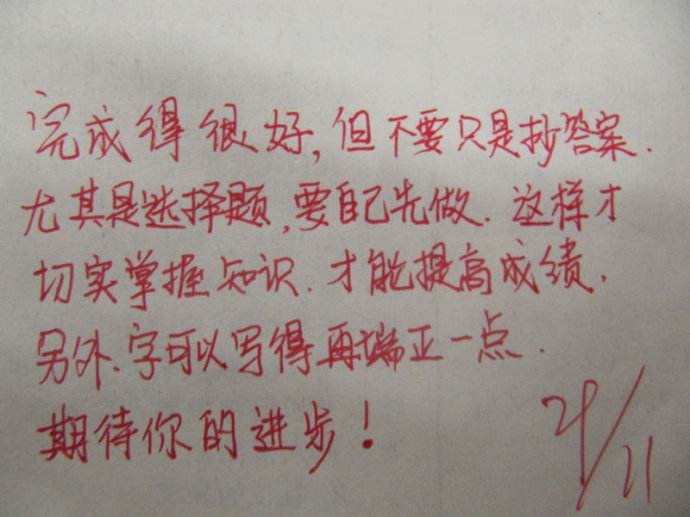 完成得很好,但不要只是抄答案.
尤其是选择题,要自己先做.这样才
切实掌握知识.才能提高成绩.
另外.字可以写得再端正一点.
期待你的进步!